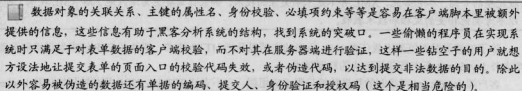 数据对象的关联关系、主键的属性名、身份校验、必填项约束等等是容易在客户端脚本里被额外
提供的信息，这些信息有助于黑客分析系统的结构，找到系统的突破口。一些偷懒的程序员在实现系
统时只满足于对表单数据的客户端校验，而不对其在服务器端进行验证，这样一些钻空子的用户就想
方设法地让提交表单的页面入口的校验代码失效，或者伪造代码，以达到提交非法数据的目的。除此
以外容易被伪造的数据还有单据的编码、提交人、身份验证和授权码（这个是相当危险的）。